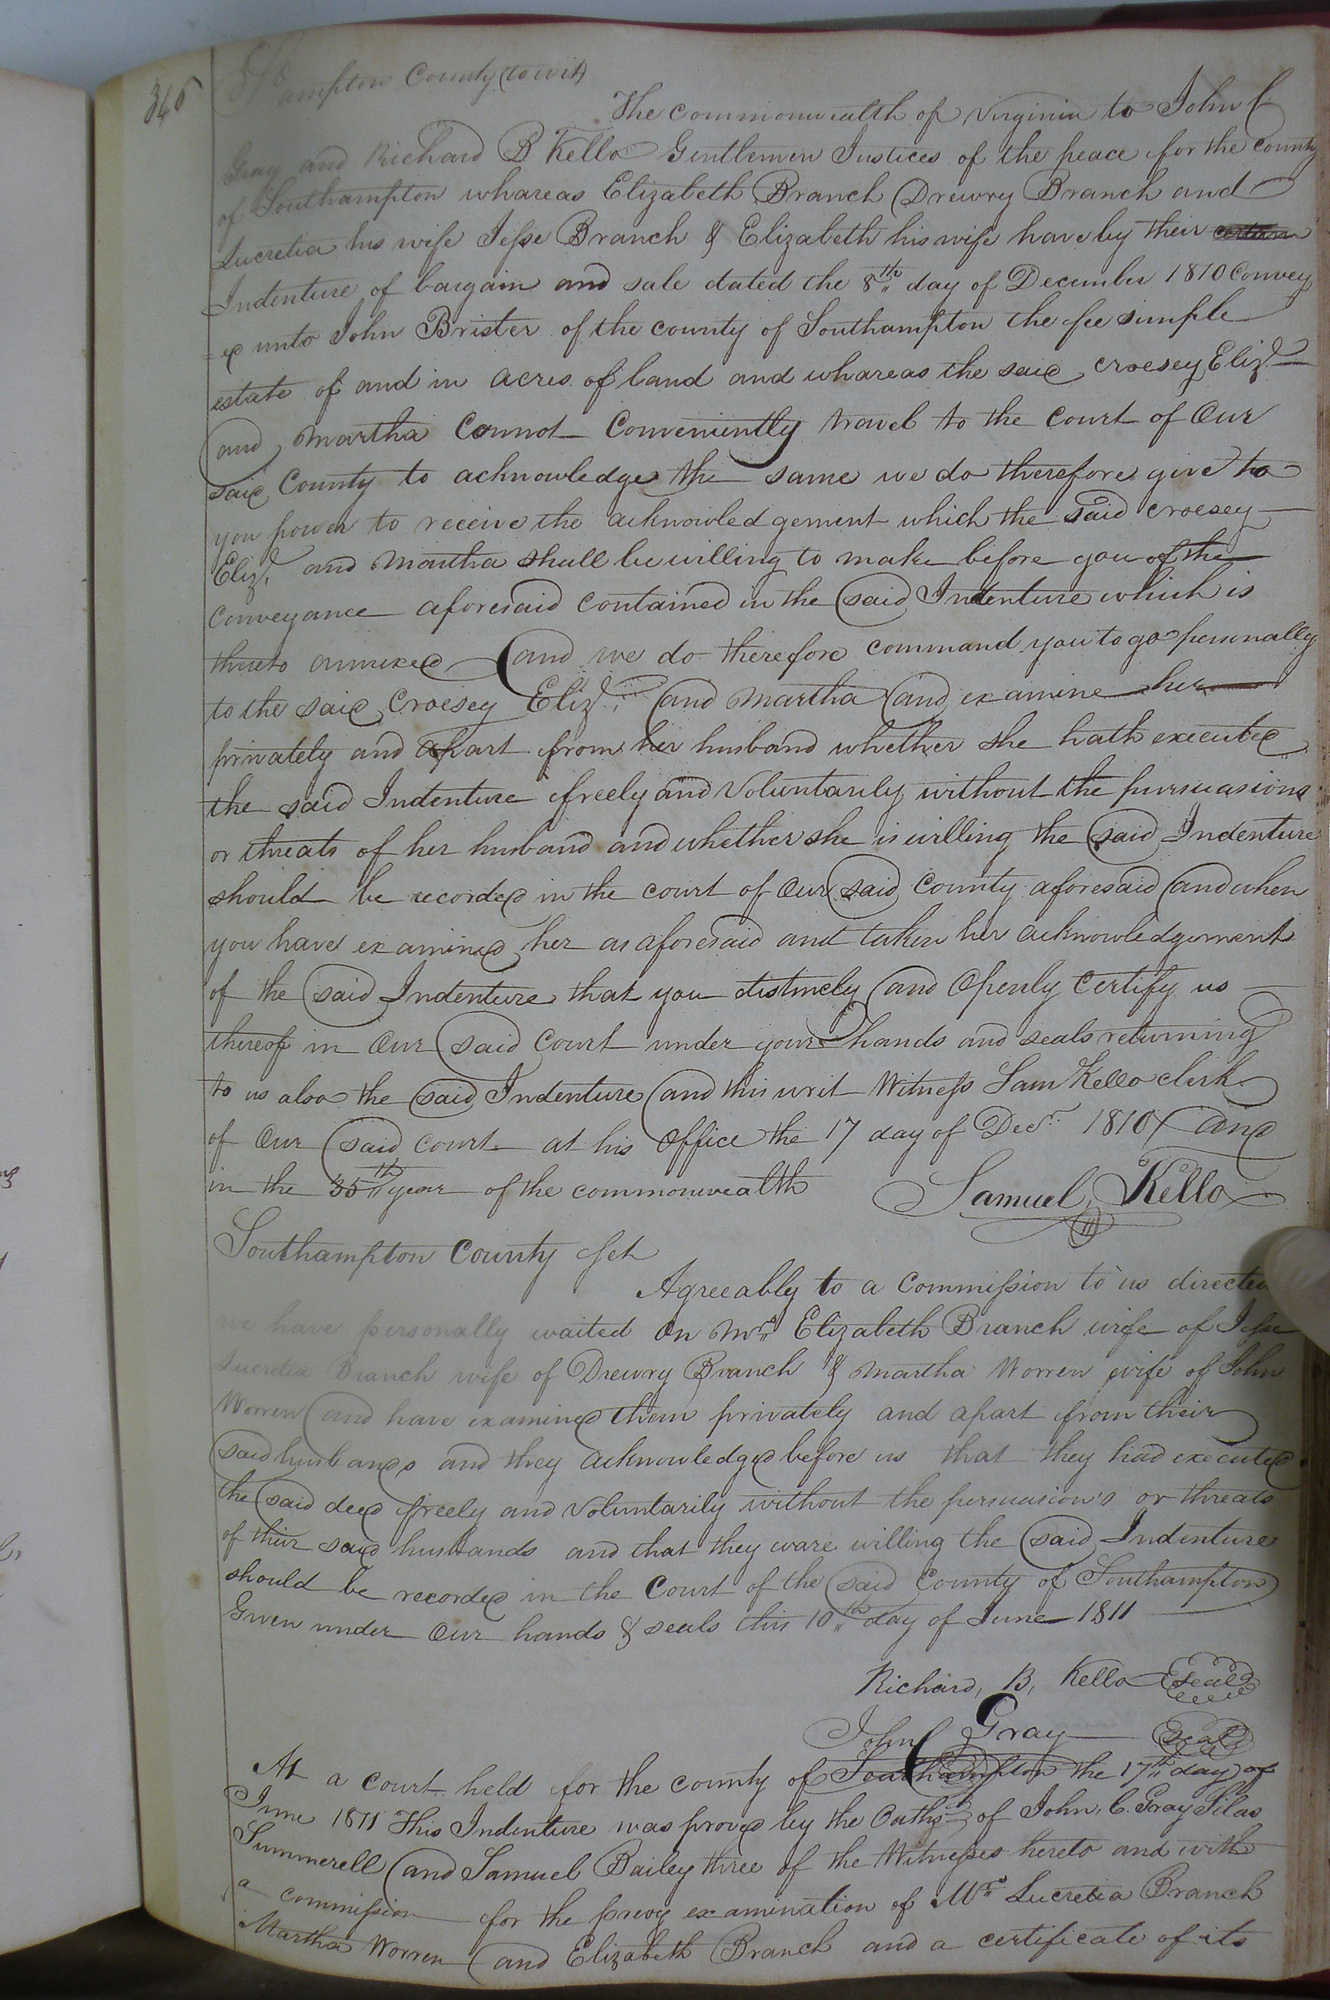 346
Hampton County (towit)
The commonwealth of Virginia to John C
Gray and Richard B Kello Gentlemen Justices of the peace for the county
of Southampton whareas Elizabeth Branch Drewry Branch and
Lucretia his wife Jesse Branch & Elizabeth his wife have by their certain
Indenture of bargain and sale dated the 8th day of December 1810 Convey
=ed unto John Brister of the county of Southampton the fee simple
estate of and in acres of land and whareas the said Croesey Eliz.
and Martha Connot Conveniently travel to the court of Our
said County to acknowledge the same we do therefore give to
you power to receive the acknowledgement which the said Croesey
Eliz. and Martha shall be willing to make before you of the
Conveyance aforesaid contained in the said Indenture which is
thereto annexed and we do therefore command you to go personally
to the said Croesey Eliz. and Martha and examine her
privately and apart from her husband whether she hath executed
the said Indenture freely and Voluntarily without the pursuasions
or threats of her husband and whether she is willing the said Indenture
should be recorded in the court of Our said County aforesaid and when
you have examined her as aforesaid and taken her acknowledgement
of the said Indenture that you distincly and Openly Certify us
thereof in Our said Court under your hands and seals returning
to us also the said Indenture and this writ Witness Sam Kello clerk
of Our said court at his Office the 17 day of Decr. 1810 and
in the 35th year of the commonwealth Samuel Kello
Southampton County Sct
Agreeably to a Commission to us directed
we have personally waited On Mrs Elizabeth Branch wife of Jesse
Lucretia Branch wife of Drewry Branch & Martha Worren wife of John
Worren and have examined them privately and apart from their
said husbands and they acknowledged before us that they had executed
the said deed freely and Voluntarily without the persuasion's or threats
of their said husbands and that they ware willing the said Indenture
should be recorded in the Court of the said County of Southampton
Given under Our hands & seals this 10th day of June 1811
Richard, B, Kello seal
John C Gray seal
At a court held for the county of Southampton the 17th day of
June 1811 This Indenture was proved by the Oaths of John C. Gray Silas
Summerell and Samuel Bailey three of the Witnesses hereto and with
a commission for the privy examination of Mrs Lucretia Branch
Martha Worren and Elizabeth Branch and a certificate of its